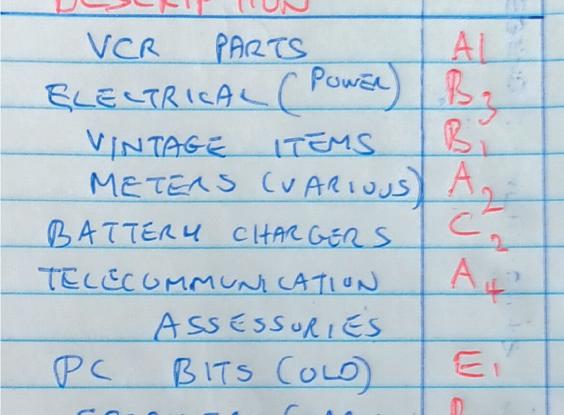 DESCRIPTION
VCR PARTS A1
ELECTRICAL (POWER) B3
VINTAGE ITEMS B1
METERS (VARIOUS) A2
BATTERY CHARGERS C2
TELECOMMUNICATION A4
ASSESSORIES
PC BITS (OLD) E1